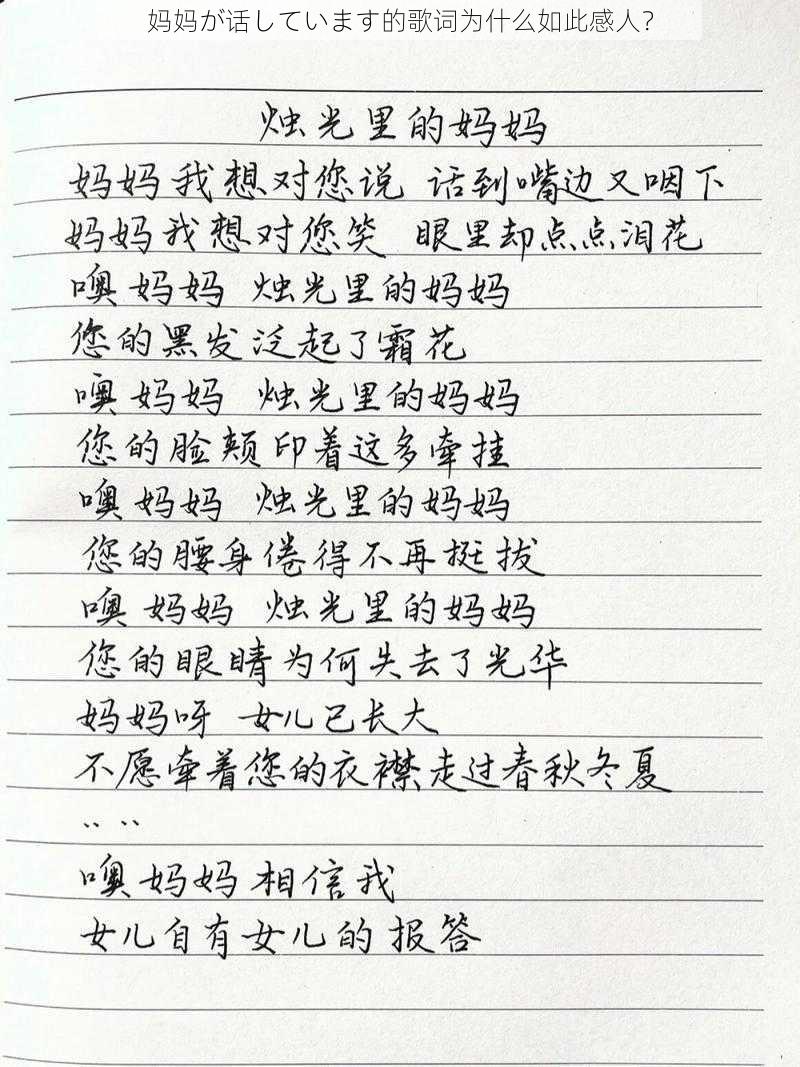 妈妈が话しています的歌词为什么如此感人？
烛光里的妈妈
妈妈我想对您说 话到嘴边又咽下
妈妈我想对您笑 眼里却点点泪花
噢妈妈 烛光里的妈妈
您的黑发泛起了霜花
噢妈妈 烛光里的妈妈
您的脸颊印着这多牵挂
噢妈妈 烛光里的妈妈
您的腰身倦得不再挺拔
噢妈妈 烛光里的妈妈
您的眼睛为何失去了光华
妈妈呀 女儿已长大
不愿牵着您的衣襟走过春秋冬夏
‥ ‥
噢妈妈相信我
女儿自有女儿的报答